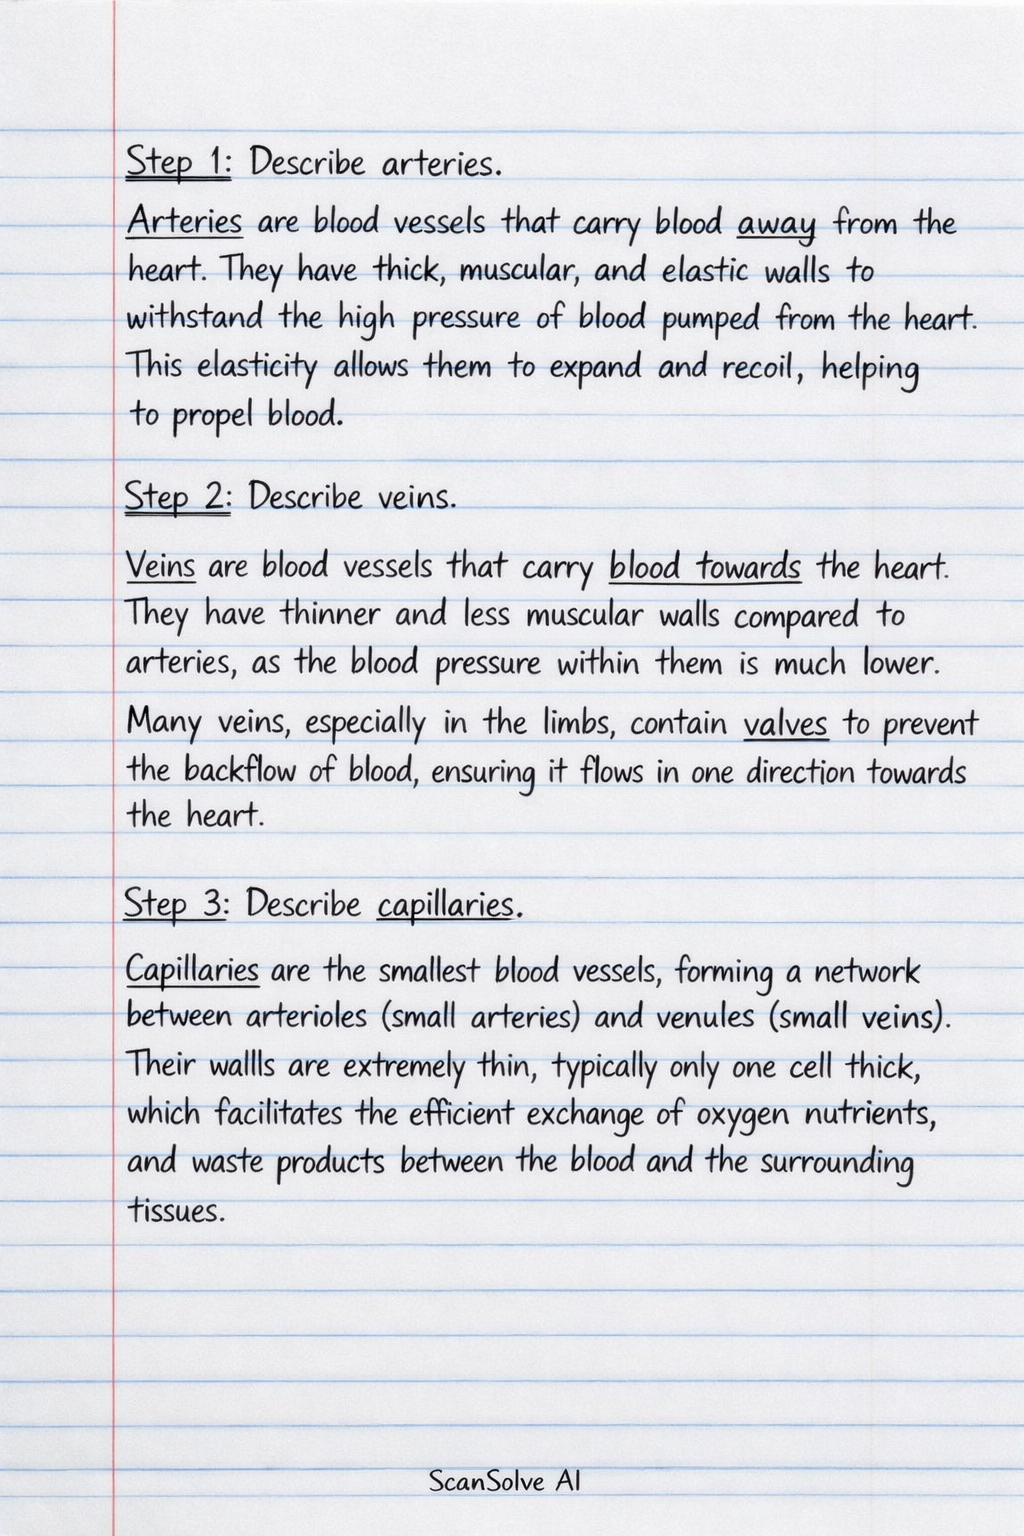 Step 1: Describe arteries.
Arteries are blood vessels that carry blood away from the
heart. They have thick, muscular, and elastic walls to
withstand the high pressure of blood pumped from the heart.
This elasticity allows them to expand and recoil, helping
to propel blood.
Step 2: Describe veins.
Veins are blood vessels that carry blood towards the heart.
They have thinner and less muscular walls compared to
arteries, as the blood pressure within them is much lower.
Many veins, especially in the limbs, contain valves to prevent
the backflow of blood, ensuring it flows in one direction towards
the heart.
Step 3: Describe capillaries.
Capillaries are the smallest blood vessels, forming a network
between arterioles (small arteries) and venules (small veins).
Their wallls are extremely thin, typically only one cell thick,
which facilitates the efficient exchange of oxygen nutrients,
and waste products between the blood and the surrounding
tissues.
ScanSolve AI